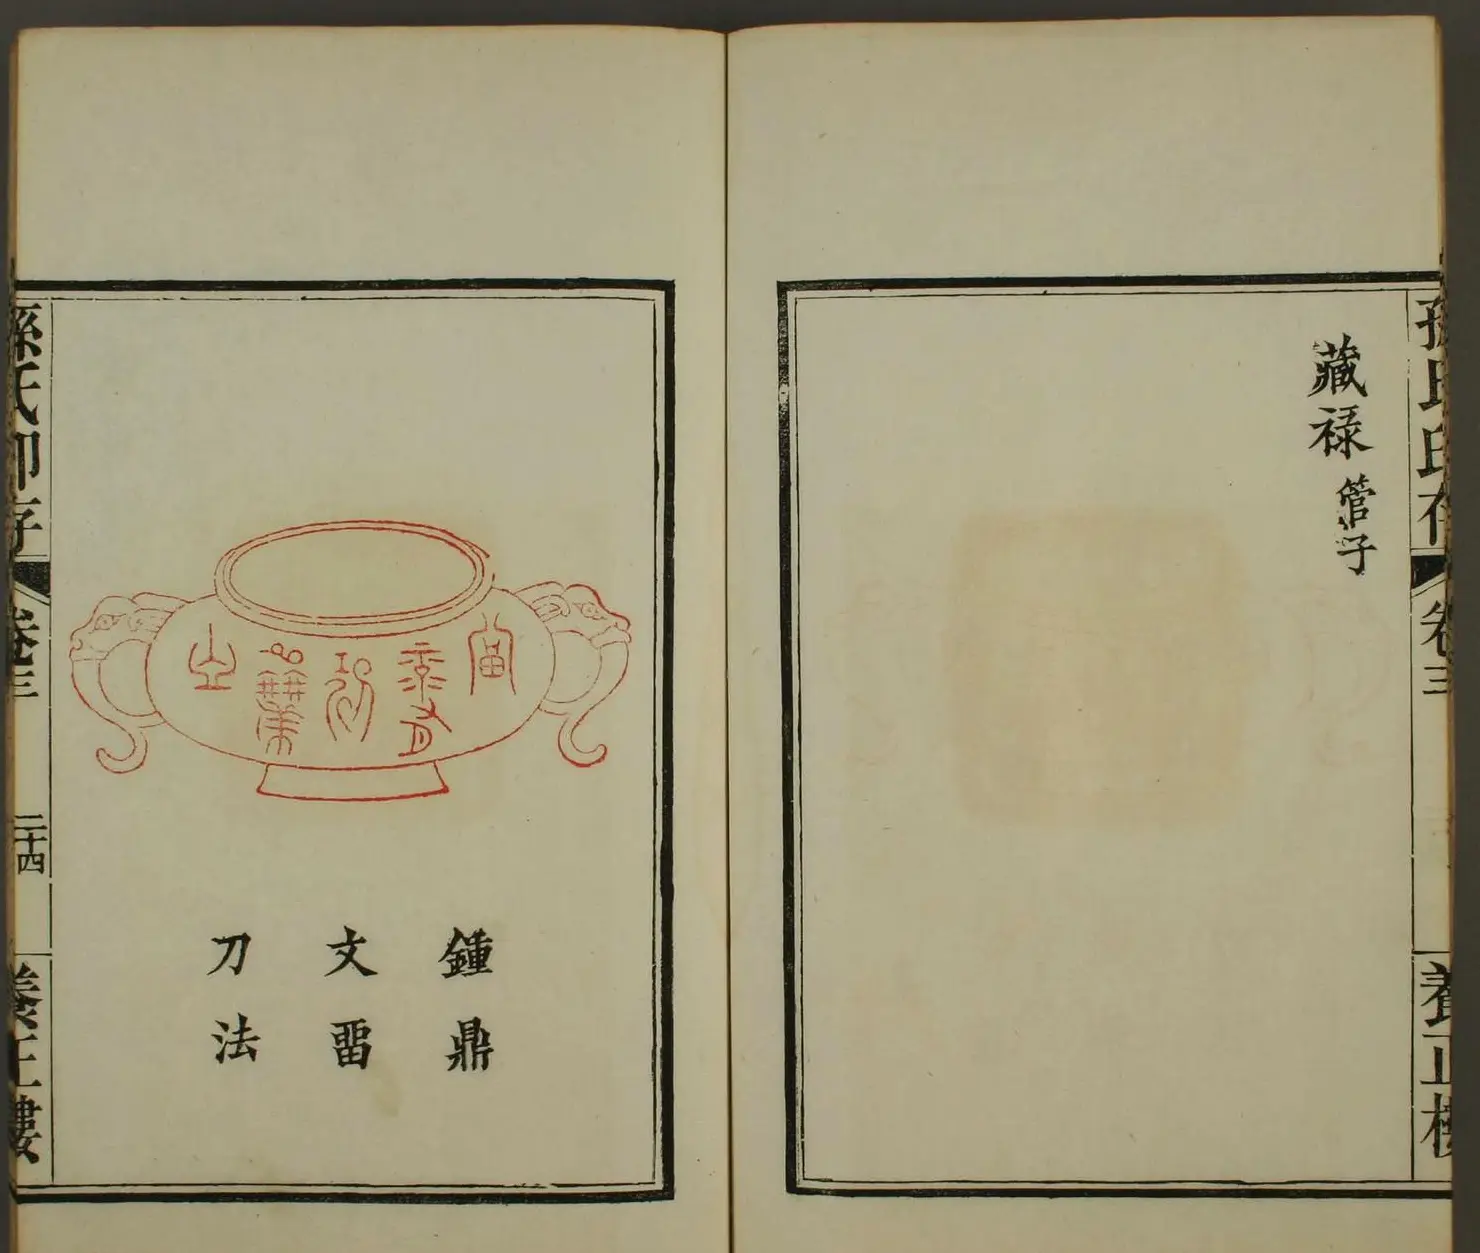 孫氏印存
卷三
養正樓
藏祿 管子
鍾鼎
文畱
刀法
孫氏印存
卷三
二十四
養正樓